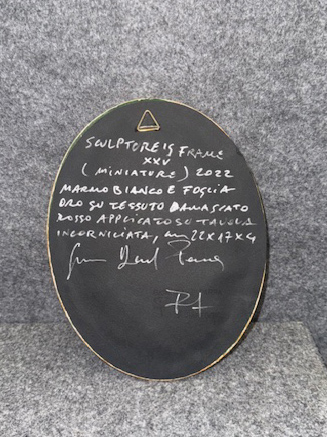 SCULPTORE'S FRAME
XXV
(MINIATURE) 2022
MARMO BIANCO E FOGLIA
ORO SU TESSUTO DAMASCATO
ROSSO APPLICATO SU TAVOLA
INCORNICIATA, cm 22X17X4